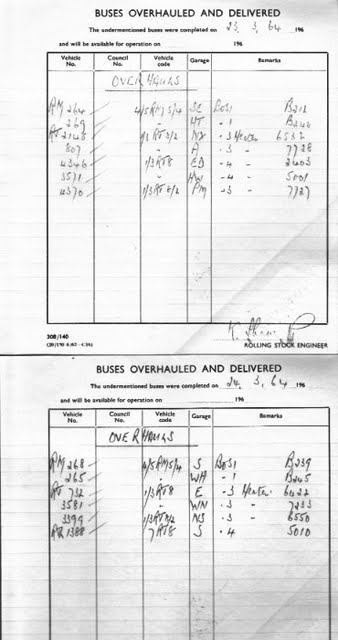 BUSES OVERHAULED AND DELIVERED
The undermentioned buses were completed on 23. 3. 64 196
and will be available for operation on 196
Vehicle No. Council No. Vehicle code Garage Remarks
OVERHAULS
RM 264 4/5RM5/4 SE Bos1 B211
269 - HT - 1 B242
RT 2143 3 Heater 6537
807 - A - 3 - 7728
4346 1/3RT8 ED - 4 - 2403
3571 - HW - 4 - 5001
4370 1/3RT8/2 PM - 3 - 7727
308/140
ROLLING STOCK ENGINEER
BUSES OVERHAULED AND DELIVERED
The undermentioned buses were completed on 24. 3. 64 196
and will be available for operation on 196
Vehicle No. Council No. Vehicle code Garage Remarks
OVERHAULS
RM 268 4/5RM5/4 S Bos1 B239
265 - WH - 1 B245
RT 732 1/3RT8 E - 3 Heater 6022
3581 - WN - 3 - 7233
3399 1/3RT8/2 NS - 3 - 6550
1388 7RT8 S - 4 5010